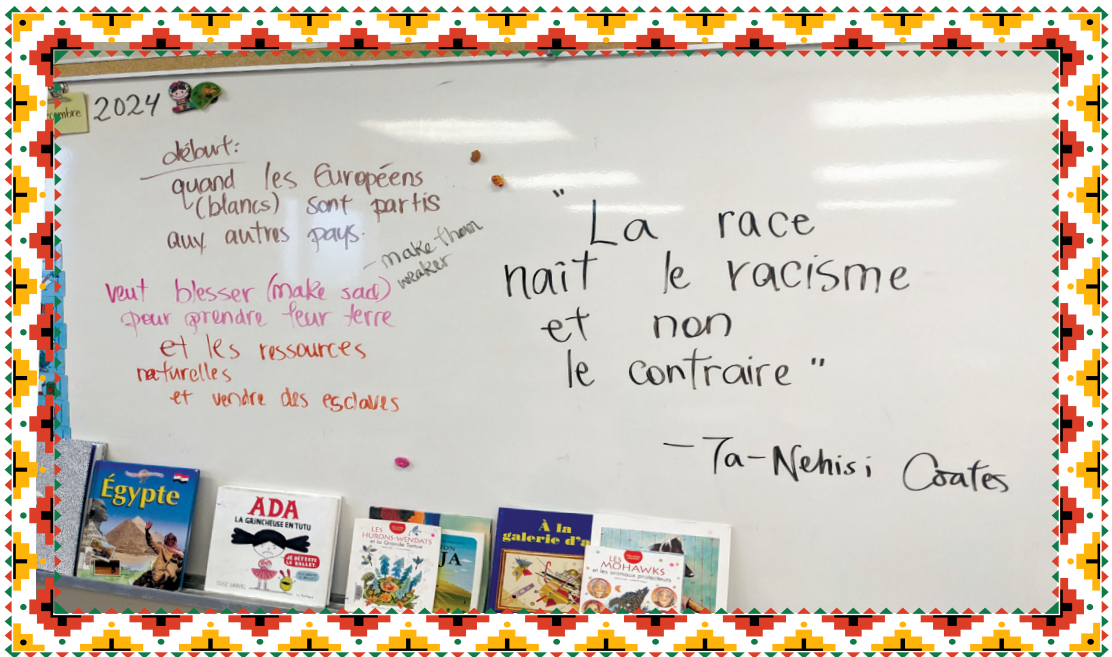 embre
2024
début:
quand les Européens
(blancs) sont partis
aux autres pays.
- make them
weaker
veut blesser (make sad)
pour prendre leur terre
et les ressources
naturelles
et vendre des esclaves
"La race
naît le racisme
et non
le contraire"
- Ta-Nehisi Coates
Égypte
ADA
LA GRINCHEUSE EN TUTU
JE DÉTESTE
LE BALLET.
LES
HURONS-WENDATS
et la Grande Tortue
ON
JA
À la
galerie d'a
LES
MOHAWKS
et les animaux protecteurs